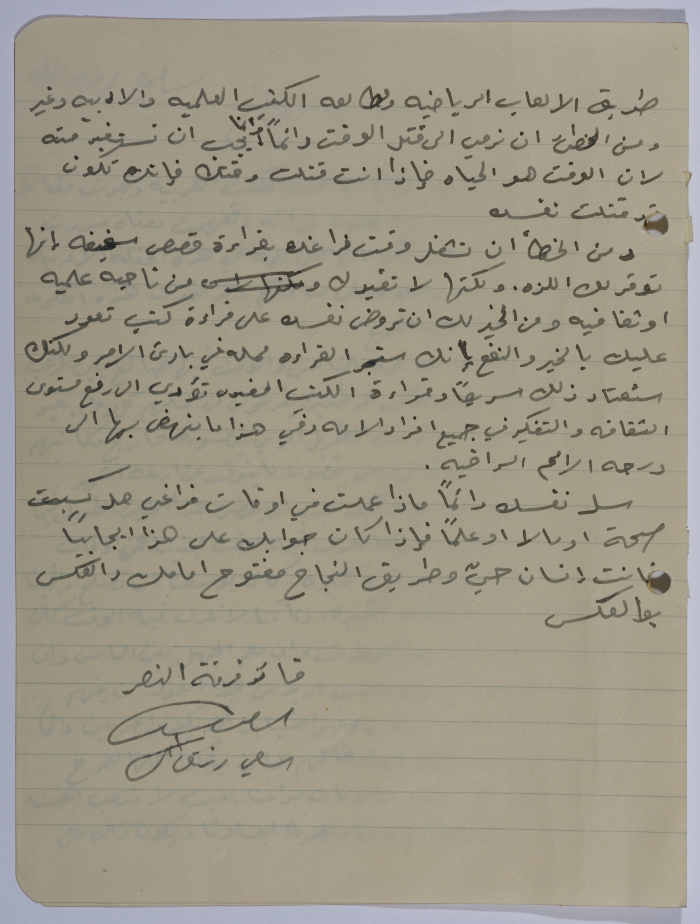 طريق الالعاب الرياضيه ومطالعه الكتب العلميه والادبيه وغير
ومن الخطأ ان نرمي الى قتل الوقت دائماً يجب ان تستفيد منه
لان الوقت هو الحياه فإذا انت قتلت وقتك فإنك تكون
قد قتلت نفسك
ومن الخطأ ان تشغل وقت فراغك بقراءة قصص سخيفه لانها
توفر لك اللذه. ولكنها لا تفيدك من ناحيه علميه
او ثقافيه ومن الخير لك ان تروض نفسك على قراءة كتب تعود
عليك بالخير والنفع إنك ستجد القراءه ممله في بادئ الامر ولكنك
ستعتاد ذلك سريعاً وقراءة الكتب المفيده تؤدي الى رفع مستوى
الثقافه والتفكير في جميع افراد الامه وفي هذا ما ينهض بها الى
درجه الامم الراقيه .
سل نفسك دائماً ماذا عملت في اوقات فراغي هل كسبت
صحة او مالا او علماً فإذا كان جوابك على هذا ايجابياً
فانت إنسان حيّ وطريق النجاح مفتوح امامك والعكس
بالعكس
قائد فرقة النصر